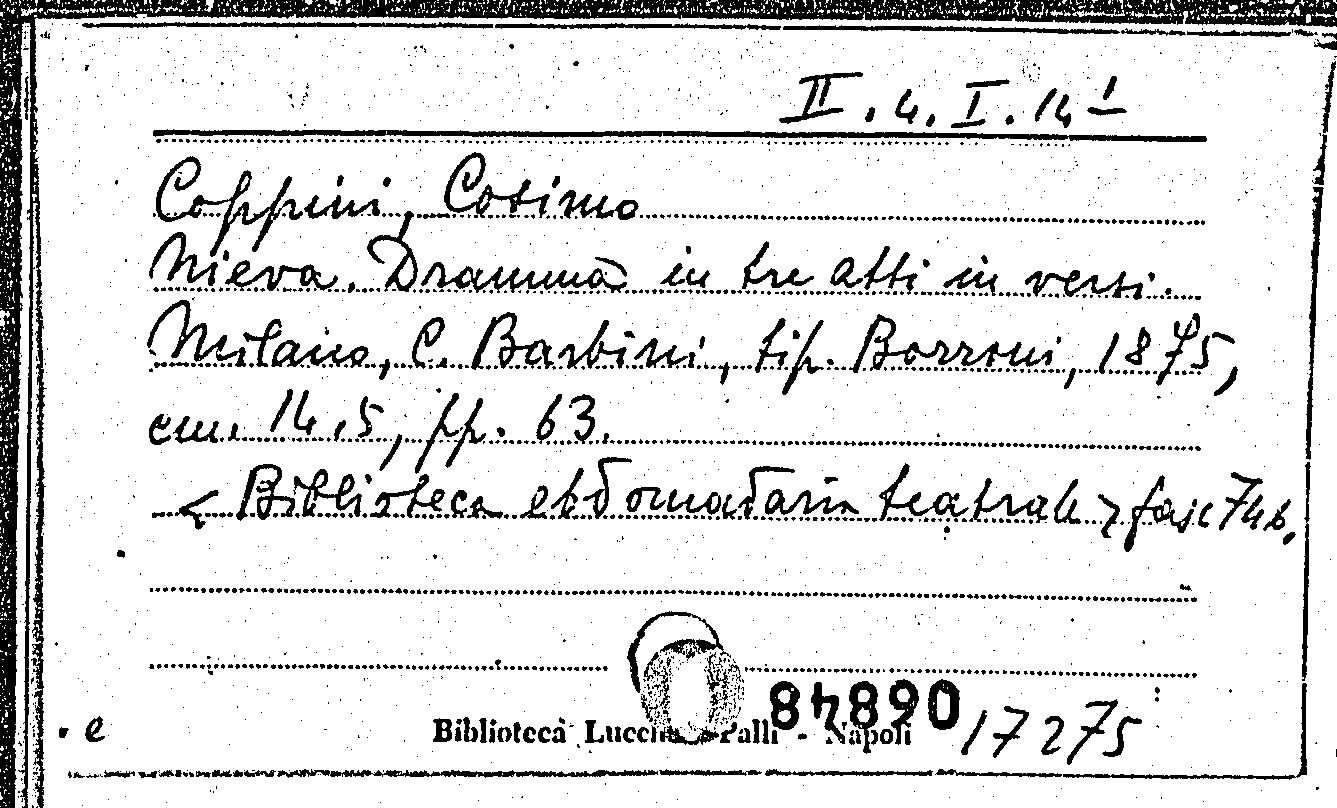 II. 4. I. 14 1
Coppini, Cosimo
Nieva. Dramma in tre atti in versi.
Milano, C. Barbini, tip. Borroni, 1875,
cm. 14,5, pp. 63.
< Biblioteca ebdomadaria teatrale > fasc 746.
06848
17275
e
Biblioteca Palli - Napoli